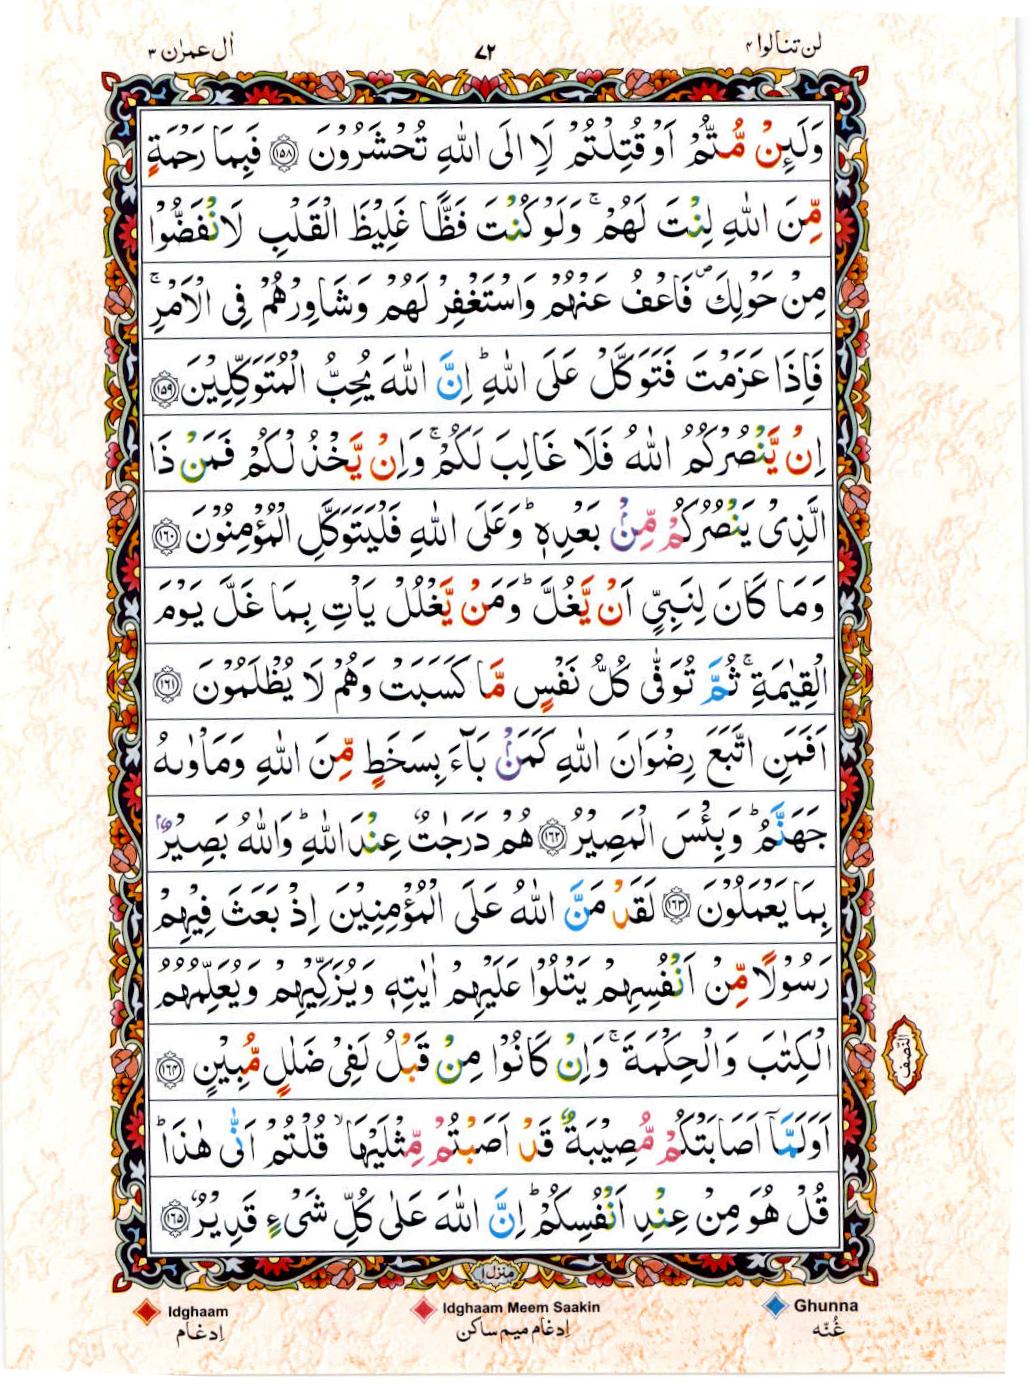 لن تنالوا ۴ ۷۲ اٰل عمرٰن ۳
وَلَئِنْ مُّتُّمْ اَوْ قُتِلْتُمْ لَاِ۟الَى اللّٰهِ تُحْشَرُوْنَ ﴿۱۵۸﴾ فَبِمَا رَحْمَةٍ
مِّنَ اللّٰهِ لِنْتَ لَهُمْ ۚ وَلَوْ كُنْتَ فَظًّا غَلِيْظَ الْقَلْبِ لَانْفَضُّوْا
مِنْ حَوْلِكَ ۖ فَاعْفُ عَنْهُمْ وَاسْتَغْفِرْ لَهُمْ وَشَاوِرْهُمْ فِى الْاَمْرِ ۚ
فَاِذَا عَزَمْتَ فَتَوَكَّلْ عَلَى اللّٰهِ ؕ اِنَّ اللّٰهَ يُحِبُّ الْمُتَوَكِّلِيْنَ ﴿۱۵۹﴾
اِنْ يَّنْصُرْكُمُ اللّٰهُ فَلَا غَالِبَ لَكُمْ ۚ وَاِنْ يَّخْذُلْكُمْ فَمَنْ ذَا
الَّذِىْ يَنْصُرُكُمْ مِّنْۢ بَعْدِهٖ ؕ وَعَلَى اللّٰهِ فَلْيَتَوَكَّلِ الْمُؤْمِنُوْنَ ﴿۱۶۰﴾
وَمَا كَانَ لِنَبِىٍّ اَنْ يَّغُلَّ ؕ وَمَنْ يَّغْلُلْ يَاْتِ بِمَا غَلَّ يَوْمَ
الْقِيٰمَةِ ۚ ثُمَّ تُوَفّٰى كُلُّ نَفْسٍ مَّا كَسَبَتْ وَهُمْ لَا يُظْلَمُوْنَ ﴿۱۶۱﴾
اَفَمَنِ اتَّبَعَ رِضْوَانَ اللّٰهِ كَمَنْۢ بَآءَ بِسَخَطٍ مِّنَ اللّٰهِ وَمَاْوٰىهُ
جَهَنَّمُ ؕ وَبِئْسَ الْمَصِيْرُ ﴿۱۶۲﴾ هُمْ دَرَجٰتٌ عِنْدَ اللّٰهِ ؕ وَاللّٰهُ بَصِيْرٌۢ
بِمَا يَعْمَلُوْنَ ﴿۱۶۳﴾ لَقَدْ مَنَّ اللّٰهُ عَلَى الْمُؤْمِنِيْنَ اِذْ بَعَثَ فِيْهِمْ
رَسُوْلًا مِّنْ اَنْفُسِهِمْ يَتْلُوْا عَلَيْهِمْ اٰيٰتِهٖ وَيُزَكِّيْهِمْ وَيُعَلِّمُهُمُ
الْكِتٰبَ وَالْحِكْمَةَ ۚ وَاِنْ كَانُوْا مِنْ قَبْلُ لَفِىْ ضَلٰلٍ مُّبِيْنٍ ﴿۱۶۴﴾
النّصف
اَوَلَمَّاۤ اَصَابَتْكُمْ مُّصِيْبَةٌ قَدْ اَصَبْتُمْ مِّثْلَيْهَا ۙ قُلْتُمْ اَنّٰى هٰذَا ؕ
قُلْ هُوَ مِنْ عِنْدِ اَنْفُسِكُمْ ؕ اِنَّ اللّٰهَ عَلٰى كُلِّ شَىْءٍ قَدِيْرٌ ﴿۱۶۵﴾
منزل ۱
Idghaam Idghaam Meem Saakin Ghunna
اِدغام اِدغام میم ساکن غُنّه